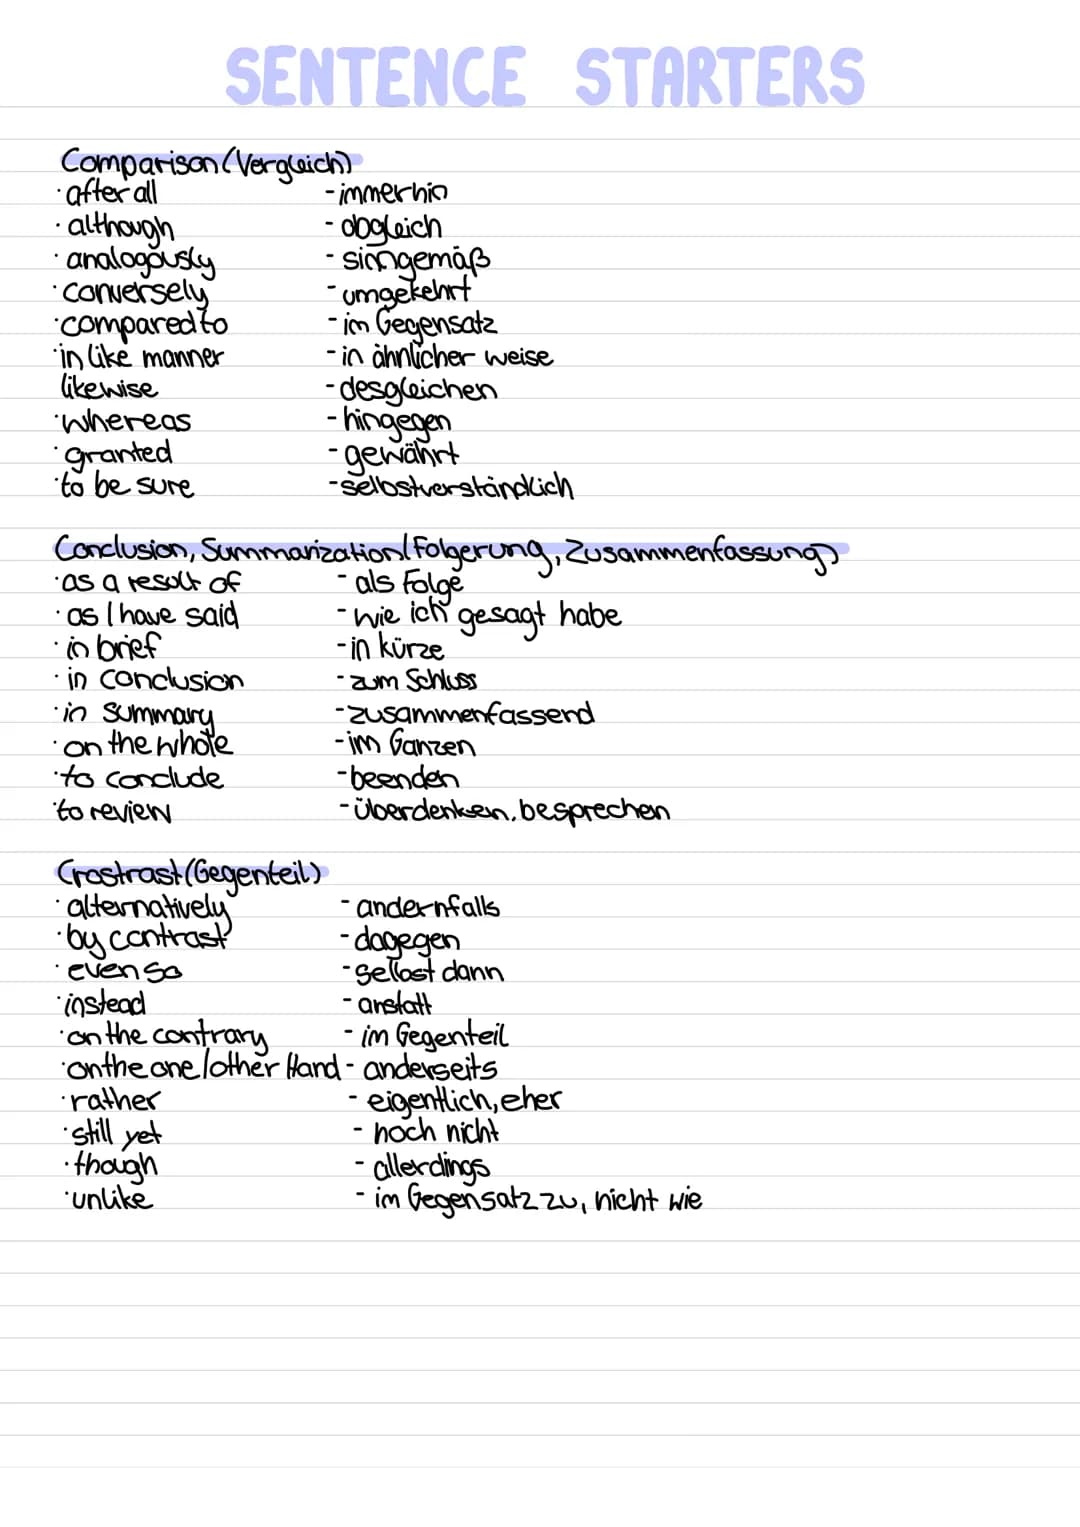 SENTENCE STARTERS
Comparison (Vergleich)
· after all - immerhin
· although - obgleich
· analogously - sinngemäß
· conversely - umgekehrt
· compared to - im Gegensatz
· in like manner - in ähnlicher weise
likewise - desgleichen
· whereas - hingegen
· granted - gewährt
· to be sure - selbstverständlich
Conclusion, Summarization (Folgerung, Zusammenfassung)
· as a result of - als Folge
· as I have said - wie ich gesagt habe
· in brief - in kürze
· in conclusion - zum Schluss
· in summary - zusammenfassend
· on the whole - im Ganzen
· to conclude - beenden
· to review - überdenken, besprechen
Crostrast (Gegenteil)
· alternatively - andernfalls
· by contrast - dagegen
· even so - selbst dann
· instead - anstatt
· on the contrary - im Gegenteil
· on the one/other Hand - anderseits
· rather - eigentlich, eher
· still yet - noch nicht
· though - allerdings
· unlike - im Gegensatz zu, nicht wie